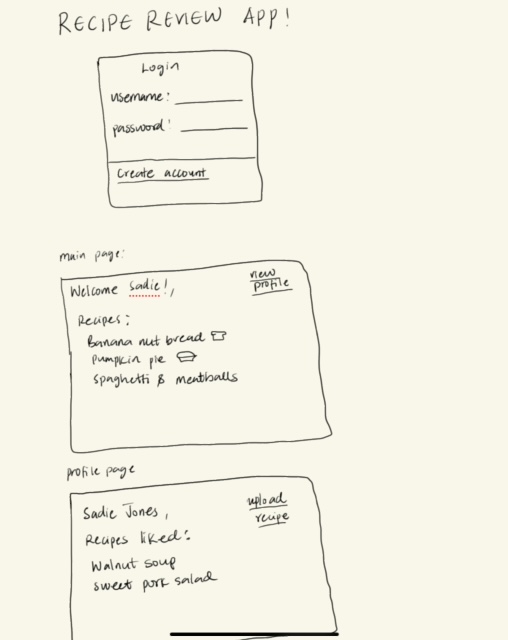 RECIPE REVIEW APP!
Login
username:
password:
Create account
main page:
Welcome Sadie!,
view
profile
Recipes:
Banana nut bread
Pumpkin pie
Spaghetti & meatballs
profile page
Sadie Jones,
upload
recipe
Recipes liked:
Walnut soup
sweet pork salad